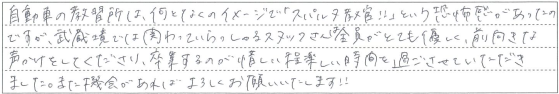 自動車の教習所は、何となくのイメージで「スパルタ教官!!」という恐怖感があったの
ですが、武蔵境では関わっていらっしゃるスタッフさん全員がとても優しく、前向きな
声かけをしてくださり、卒業するのが惜しい程楽しい時間を過ごさせていただき
ました。また機会があればよろしくお願いいたします!!